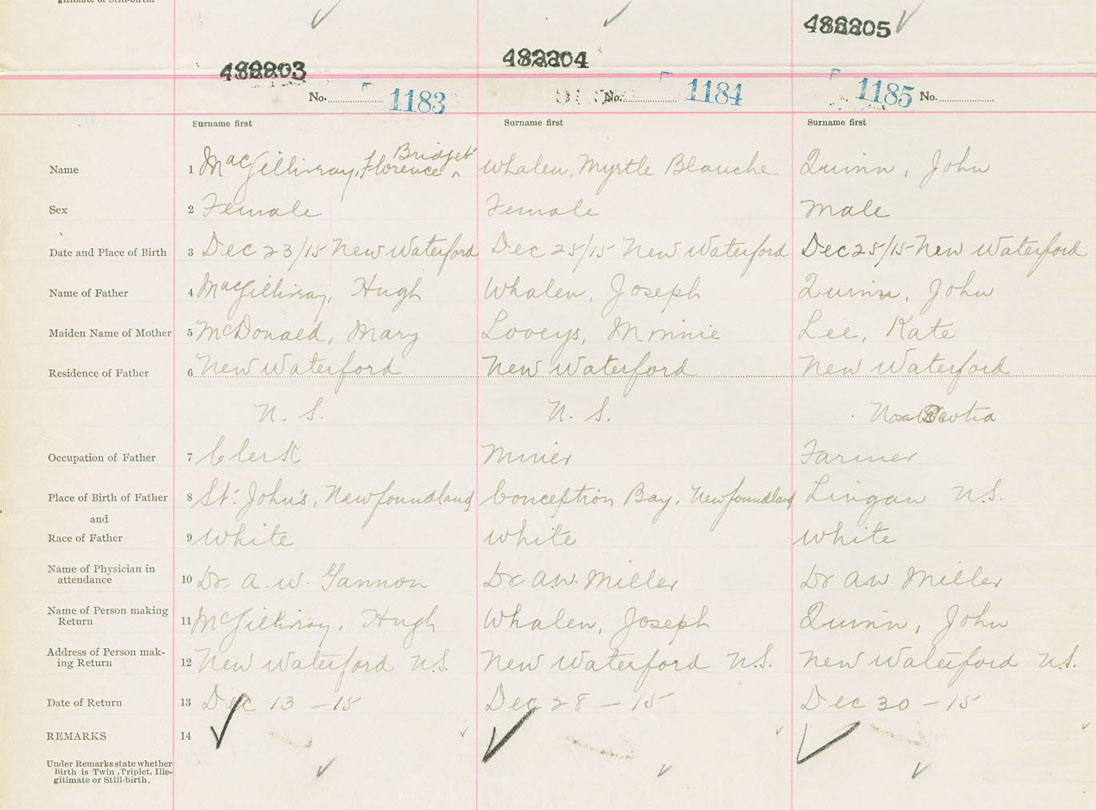 gitimate or Still-birth.
482203 482204 482205
No. 1183 No. 1184 1185 No.
Surname first Surname first Surname first
Name 1 MacGillivray, Florence ^ Bridget Whalen, Myrtle Blanche Quinn, John
Sex 2 Female Female Male
Date and Place of Birth 3 Dec 23/15 New Waterford Dec 25/15 New Waterford Dec 25/15 New Waterford
Name of Father 4 MacGillivray, Hugh Whalen, Joseph Quinn, John
Maiden Name of Mother 5 McDonald, Mary Minnie Lee, Kate
Residence of Father 6 New Waterford New Waterford New Waterford
N. S. N. S. Nova Scotia
Occupation of Father 7 Clerk Miner Farmer
Place of Birth of Father 8 St. John's, Newfoundland Conception Bay, Newfoundland Lingan N.S.
and
Race of Father 9 White White White
Name of Physician in
attendance 10 Dr. A. W. Gannon Dr AW. Miller Dr AW. Miller
Name of Person making
Return 11 McGillivray, Hugh Whalen, Joseph Quinn, John
Address of Person mak-
ing Return 12 New Waterford N.S. New Waterford N.S. New Waterford N.S.
Date of Return 13 Dec 13 - 15 Dec 28 - 15 Dec 30 - 15
REMARKS 14
Under Remarks state whether
Birth is Twin, Triplet, Ille-
gitimate or Still-birth.